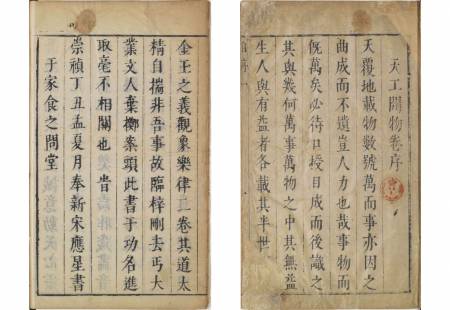 天工開物卷序
天覆地載物數號萬而事亦因之
曲成而不遺豈人力也哉事物而
既萬矣必待口授目成而後識之
其與幾何萬事萬物之中其無益
生人與有益者各載其半世
金玉之義觀象樂律二卷其道太
精自揣非吾事故臨梓刪去丐大
業文人棄擲案頭此書于功名進
取毫不相關也 旹
崇禎丁丑孟夏月奉新宋應星書
于家食之問堂